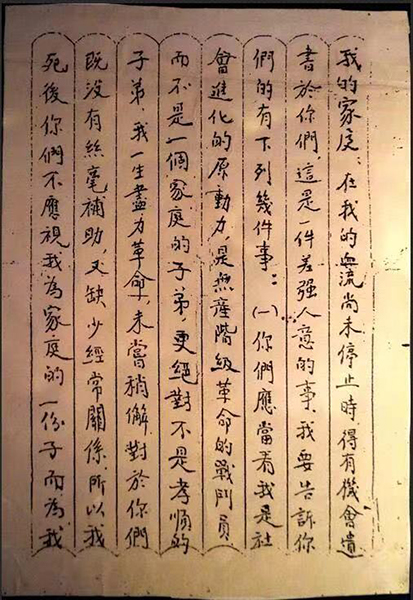 我的家庭:在我的血流尚未停止時,得有機會遺
書於你們,這是一件差强人意的事、我要告訴你
們的有下列幾件事:(一)你們應當看我是社
會進化的原動力,是無產階級革命的戰鬥員
而不是一個家庭的子弟,更絕對不是孝順的
子弟,我一生盡力革命,未嘗稍懈.對於你們
既没有絲毫補助,又缺少經常關係,所以我
死後你們不應視我為家庭的一份子而為我